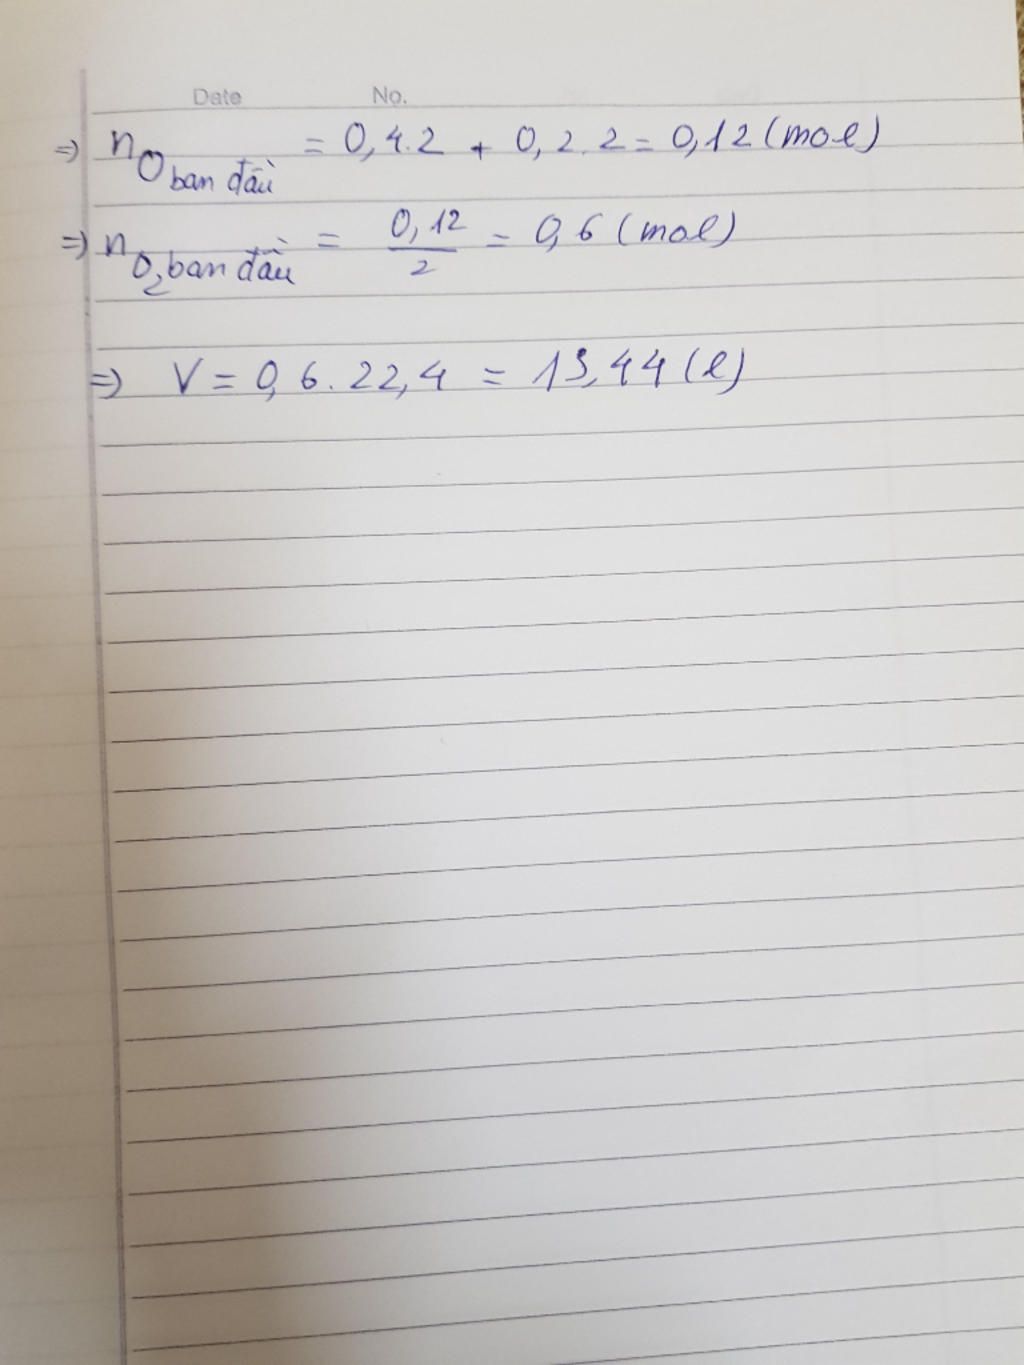 Date No.
=> n O ban đầu = 0,4.2 + 0,2.2 = 0,12 (mol)
=> n O2 ban đầu = 0,12/2 = 0,6 (mol)
=> V = 0,6.22,4 = 13,44 (l)